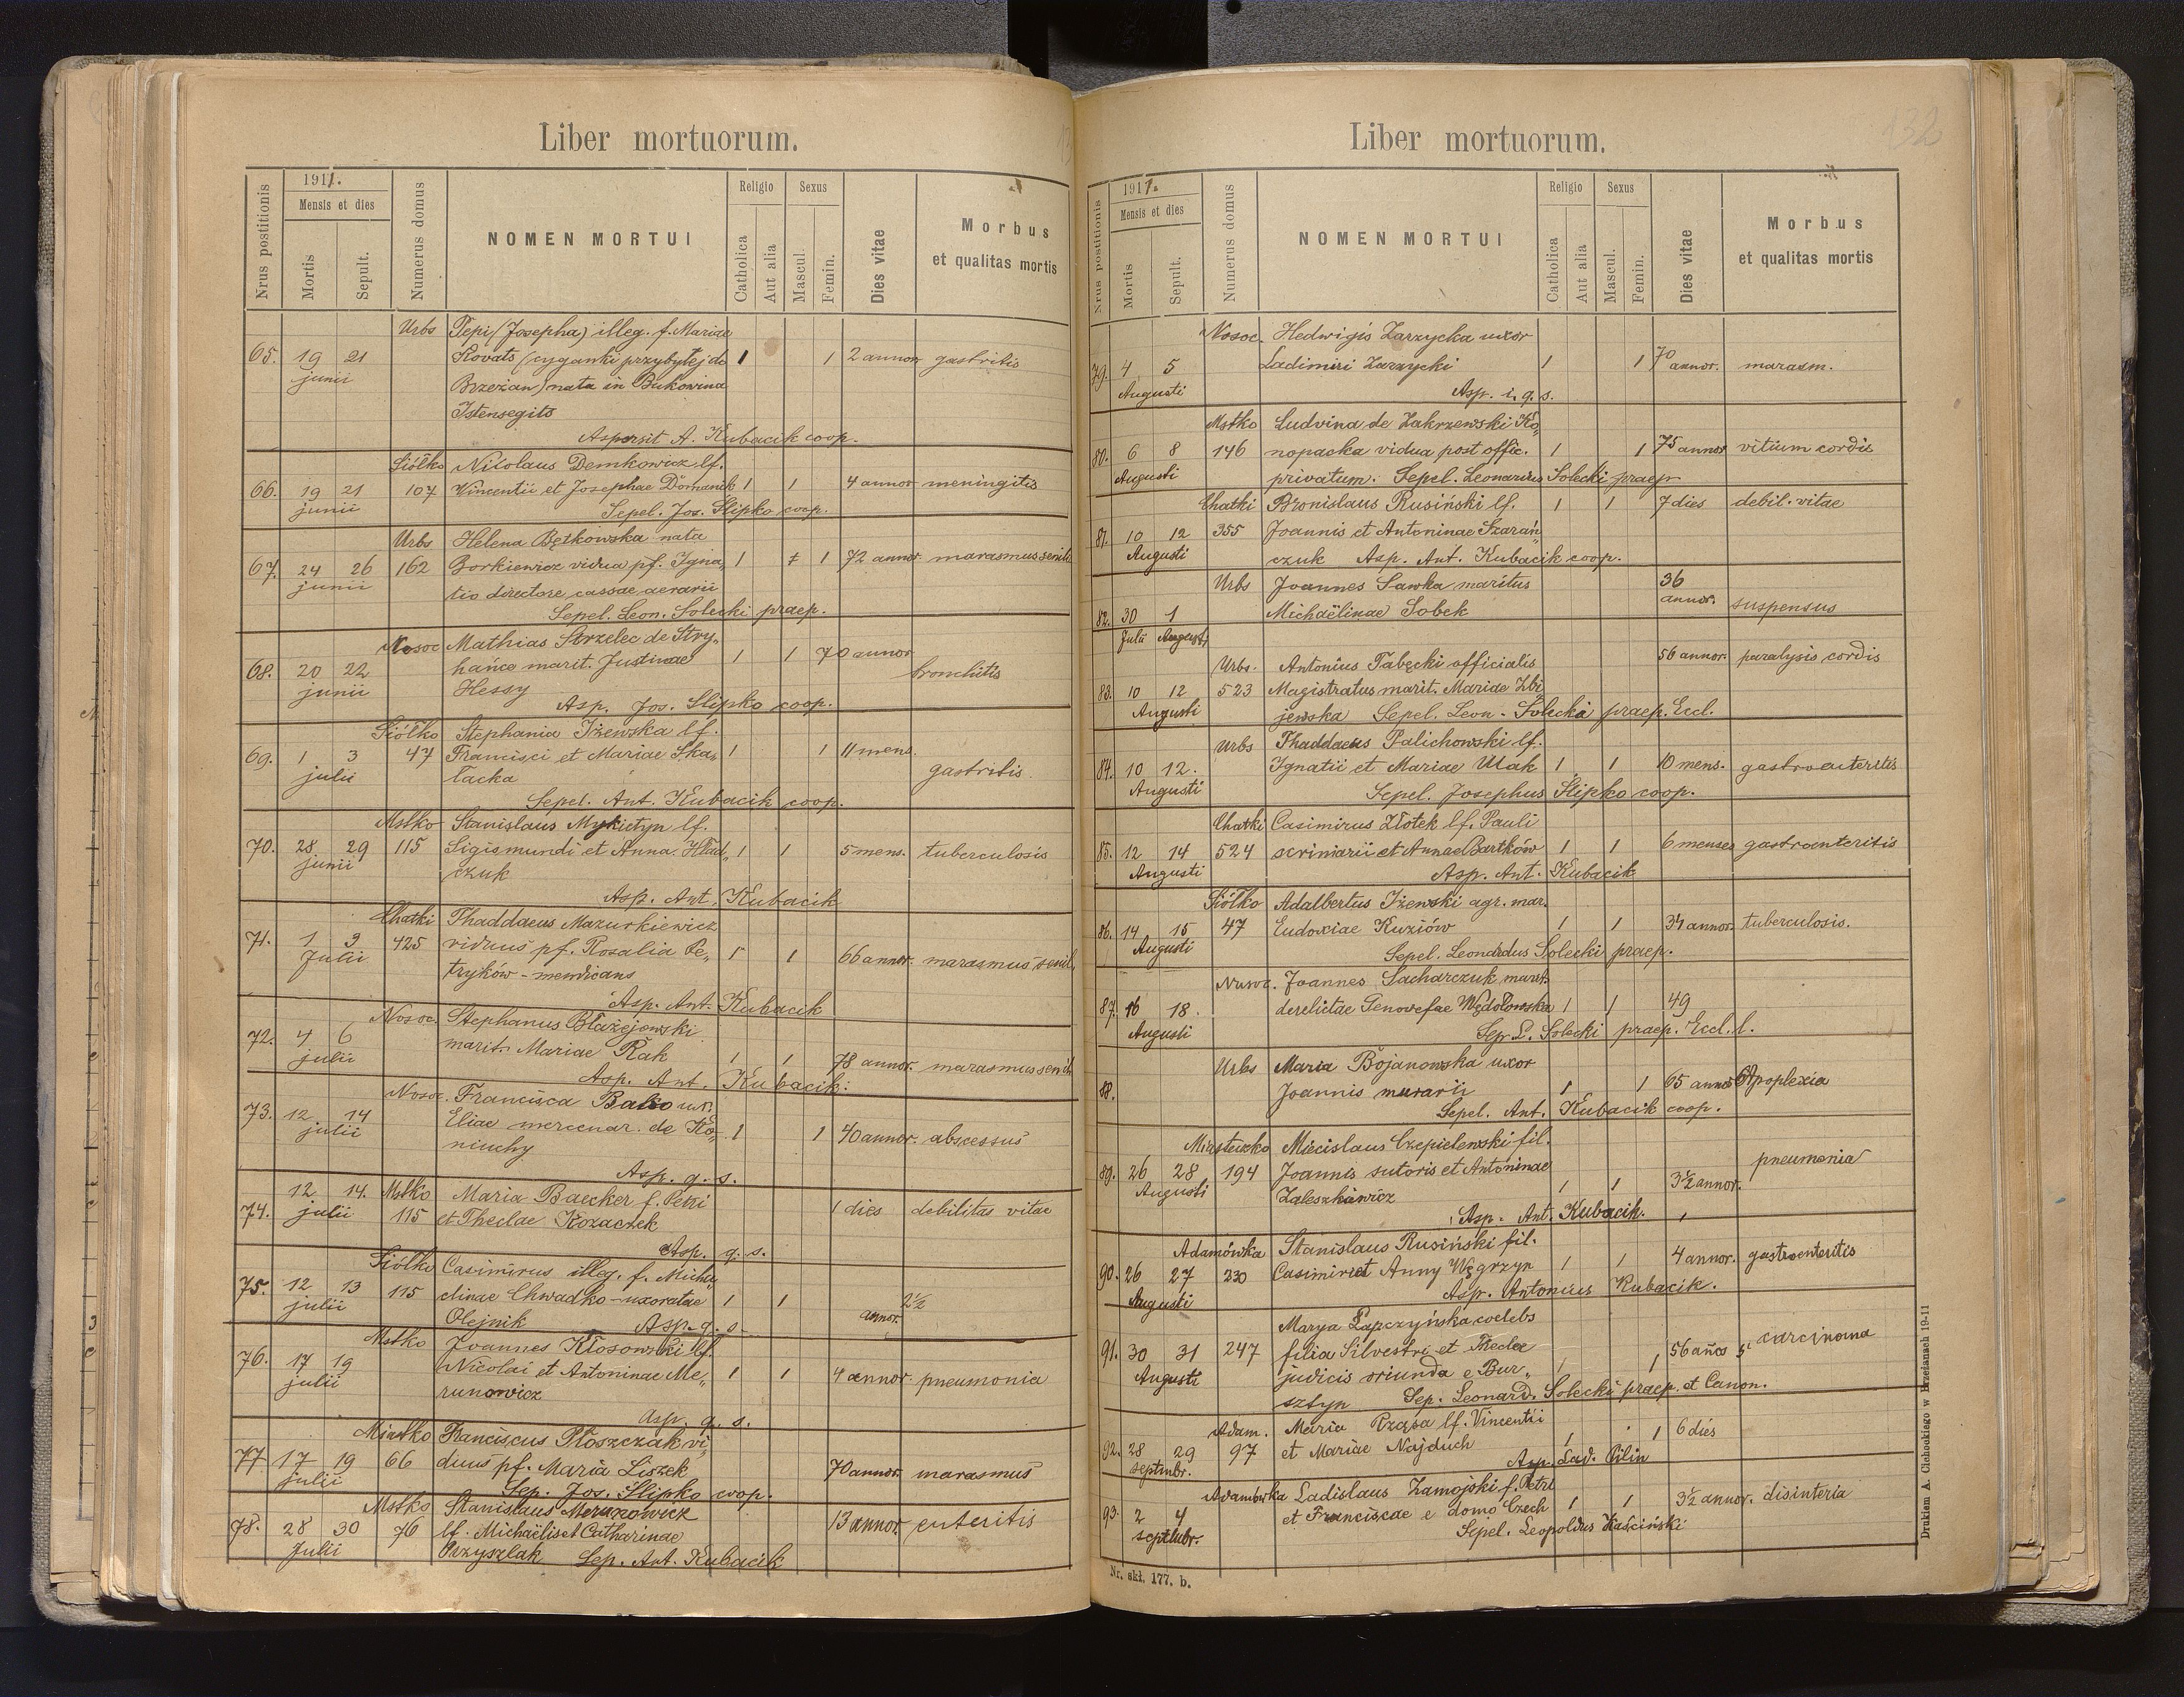 Liber mortuorum.
Nrus postitionis
1911.
Mensis et dies
Mortis
Sepult.
Numerus domus
NOMEN MORTUI
Religio
Catholica
Aut alia
Sexus
Mascul.
Femin.
Dies vitae
Morbus
et qualitas mortis
Urbs Pepi (Josepha) illeg. f. Mariae
65. 19 21 Kovats (cyganki przybyłej do 1 1 2 annor gastritis
junii Brzeżan) nata in Bukowina
Istensegits
Aspersit A. Kubacik coop.
Siółko Nicolaus Demkowicz lf.
66. 19 21 107 Vincentii et Josephae Domanik 1 1 4 annor meningitis
junii Sepel. Jos. Slipko coop.
Urbs Helena Bętkowska nata
67. 24 26 162 Borkiewicz vidua pf. Igna„ 1 1 72 annor. marasmus senilis
junii tio directore cassae aerarii
Sepel. Leon. Solecki praep.
Nosoc Mathias Strzelec de Stry„
68. 20 22 hańce marit. Justinae 1 1 70 annor
junii Hessy bronchitis
Asp. Jos. Slipko coop.
Siółko Stephania Iżewska lf.
69. 1 3 47 Francisci et Mariae Ska„ 1 1 11 mens.
julii łacka gastritis
Sepel. Ant. Kubacik coop.
Mstko Stanislaus Mykietyn lf.
70. 28 29 115 Sigismundi et Anna Hład„ 1 1 5 mens. tuberculosis
junii czuk
Asp. Ant. Kubacik
Chatki Thaddaeus Mazurkiewicz
71. 1 3 425 viduus pf. Rosalia Pe„ 1 1 66 annor. marasmus senil.
Julii tryków - mendicans
Asp. Ant. Kubacik
Nosoc. Stephanus Błażejowski
72. 4 6 marit. Mariae Rak
julii 1 1 78 annor. marasmus senil.
Asp. Ant. Kubacik.
Nosoc. Francisca Balio ux.
73. 12 14 Eliae mercenar. de Ko„ 1 1 40 annor. abscessus
julii niuchy
Asp. q. s.
12 14. Mstko Maria Baecker f. Petri 1 dies debilitas vitae
74. julii 115 et Theclae Kozaczek
Asp. q. s.
Siółko Casimirus illeg. f. Micha„
75. 12 13 115 elinae Chwadko - uxoratae 1 1 2½
julii Olejnik Asp. q. s. annor.
Mstko Joannes Kłosowski lf.
76. 17 19 Nicolai et Antoninae Me„ 1 1 4 annor. pneumonia
julii runowicz
Asp. q. s.
Miastko Franciscus Płoszczak vi„
77 17 19 66 duus pf. Maria Liszek 70 annor. marasmus
julii Sep. Jos. Slipko coop.
Mstko Stanislaus Merunowicz
78. 28 30 76 lf. Michaëlis et Catharinae 13 annor. enteritis
Julii Przyszlak Sep. Ant. Kubacik
Liber mortuorum.
132
Nrus postitionis
1911.
Mensis et dies
Mortis
Sepult.
Numerus domus
NOMEN MORTUI
Religio
Catholica
Aut alia
Sexus
Mascul.
Femin.
Dies vitae
Morbus
et qualitas mortis
Nosoc. Hedwigis Zarzycka uxor
79. 4 5 Ladimiri Zarzycki 1 1 70 annor. marasm.
Augusti Asp. i. q. s.
Mstko Ludvina de Zakrzewski Ko„
80. 6 8 146 nopacka vidua post offic. 1 1 75 annor vitium cordis
Augusti privatum. Sepel. Leonardus Solecki praep
Chatki Bronislaus Rusiński lf. 1 1 7 dies debil. vitae
81. 10 12 355 Joannis et Antoninae Szarań„
Augusti czuk Asp. Ant. Kubacik coop.
Urbs Joannes Sawka maritus 36
82. 30 1 Michaëlinae Sobek annor. suspensus
Julii Augusti
Urbs. Antonius Tabęcki officialis 56 annor. paralysis cordis
83. 10 12 523 Magistratus marit. Mariae Zbi„
Augusti jewska Sepel. Leon. Solecki praep. Eccl.
Urbs Thaddaeus Palichowski lf.
84. 10 12. Ignatii et Mariae Ulak 1 1 10 mens. gastroenteritis
Augusti Sepel. Josephus Slipko coop.
Chatki Casimirus Złotek lf. Pauli
85. 12 14 524 scriniarii et Annae Bartków 1 1 6 menses gastroenteritis
Augusti Asp. Ant. Kubacik
Siółko Adalbertus Iżewski agr. mar.
86. 14 15 47 Eudoxiae Kuziów 1 1 34 annor. tuberculosis.
Augusti Sepel. Leonardus Solecki praep.
Nosoc. Joannes Sacharczuk marit.
87. 16 18. derelictae Genowefae Wędołowska 1 1 49
Augusti Sep. L. Solecki praep. Eccl. l.
Urbs Maria Bojanowska uxor
88. Joannis murarii 1 1 65 annos Apoplexia
Sepel. Ant. Kubacik coop.
Miasteczko Miecislaus Czepielewski fil.
89. 26 28 194 Joannis sutoris et Antoninae pneumonia
Augusti Zaleszkiewicz 1 1 3½ annor.
Asp. Ant. Kubacik.
Adamówka Stanislaus Rusiński fil.
90. 26 27 230 Casimiri et Anny Węgrzyn 1 1 4 annor. gastroenteritis
Augusti Asp. Antonius Kubacik.
Marya Łapczyńska coelebs
91. 30 31 247 filia Silvestri et Theclae 1 1 56 años carcinoma
Augusti judicis oriunda e Bur„
sztyn Sep. Leonard. Solecki praep. et Canon.
Adam. Maria Prząsa lf. Vincentii 1 1 6 dies
92. 28 29 97 et Mariae Najduch
septmbr. Asp. Lad. Pilin
Adamówka Ladislaus Zamojski f. Petri
93. 2 4 et Franciscae e domo Czech 1 1 3½ annor. disinteria
septmbr. Sepel. Leopoldus Kaściński
Nr. skł. 177. b.
Drukiem A. Cichockiego w Brzeżanach 19-11